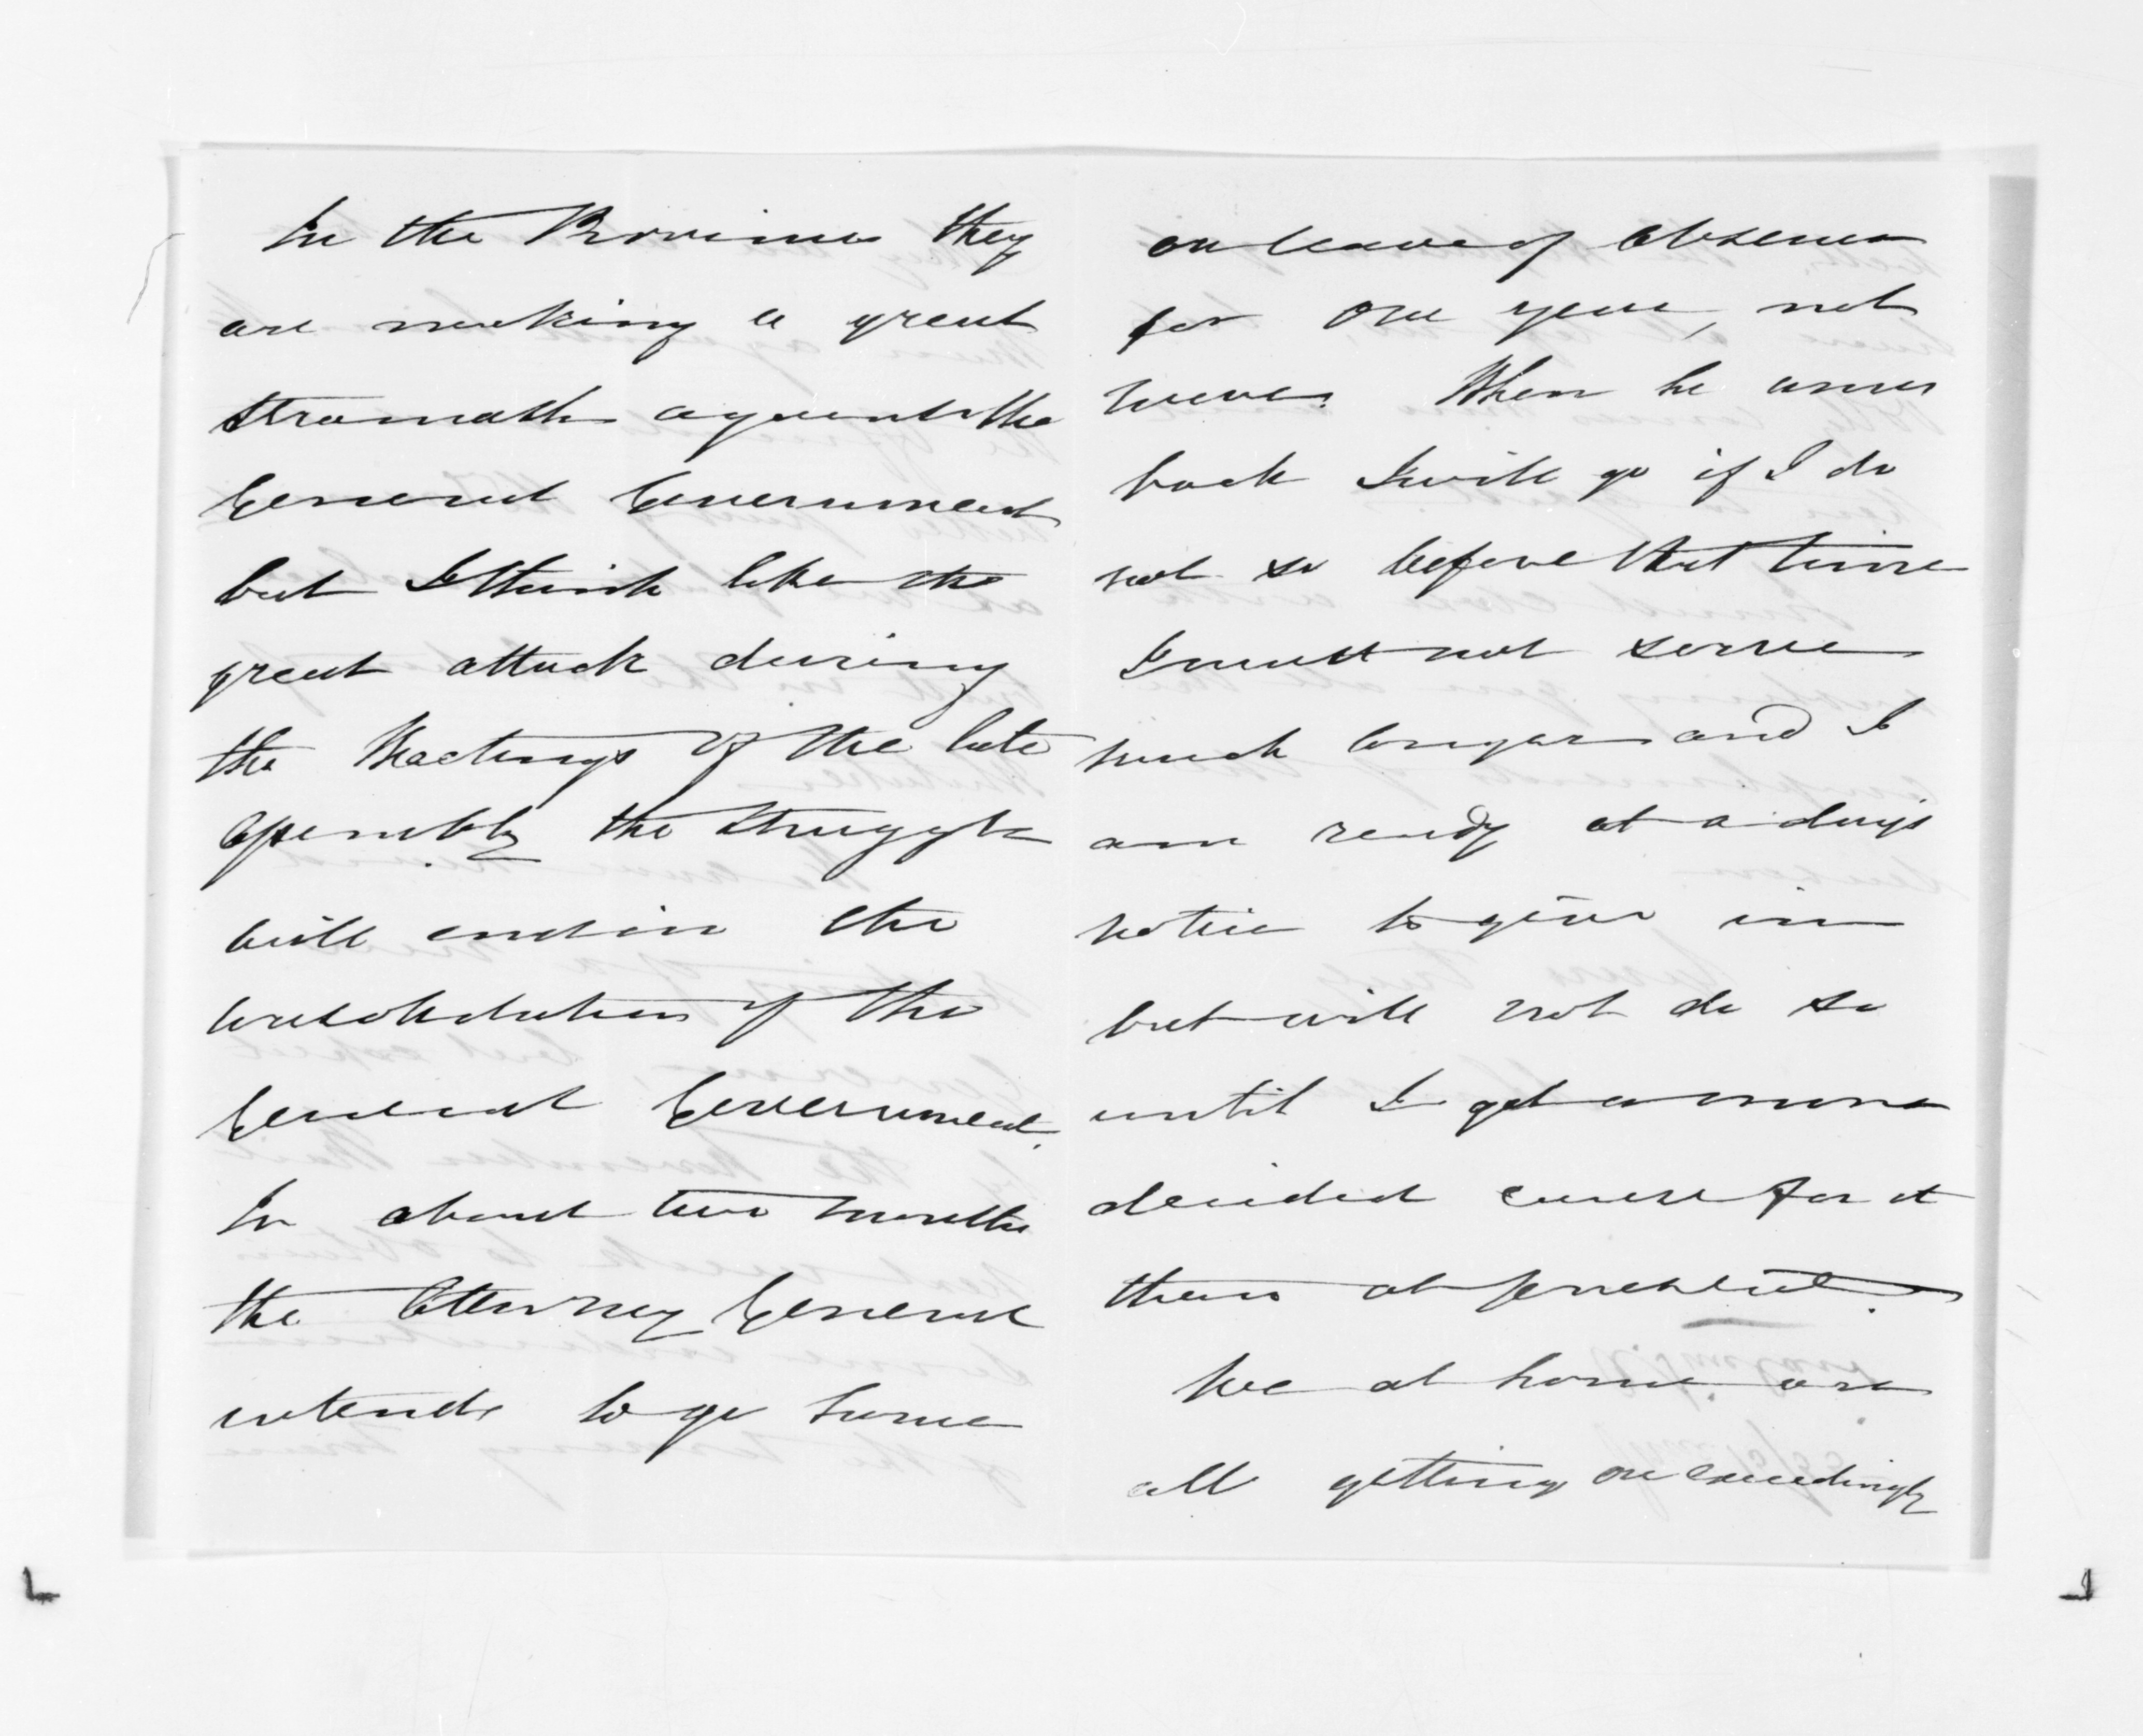 In the Provinces they
are making a great
stramash against the
General Government
but I think like the
great attack during
the Meetings of the late
Assembly the struggle
will end in the
consolidation of the
General Government.
In about two months
the Attorney General
intends to go home
on leave of absence
for one year, not
more. When he comes
back I will go if I do
not so before that time
I must not serve
much longer and I
am ready at a days
notice to give in
but will not do so
until I get a more
decided cause for it
than at present.
We at home are
all getting on exceedingly